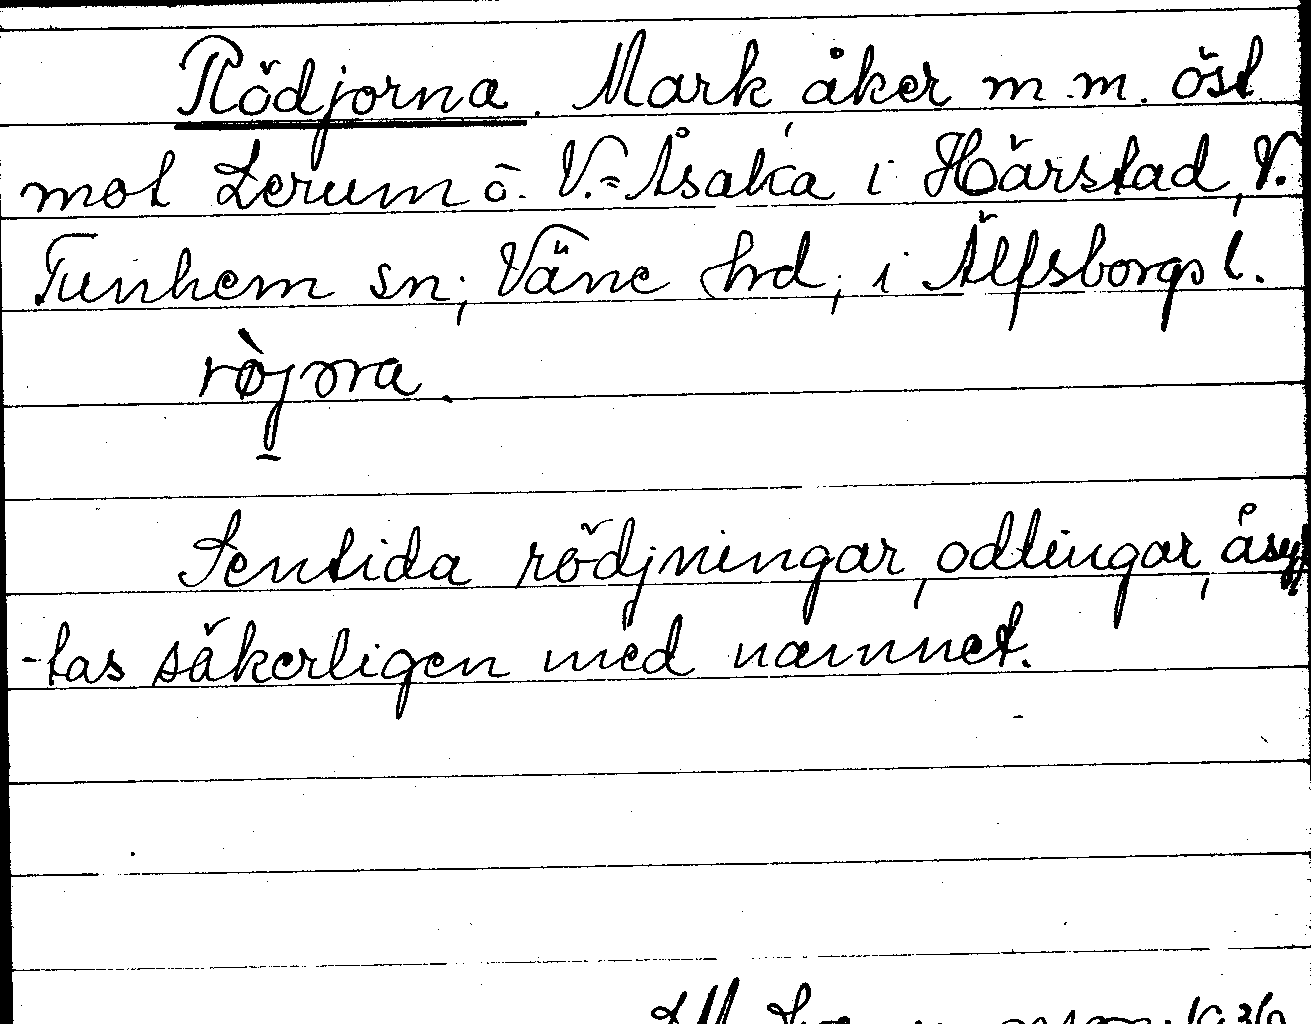 Rödjorna. Mark åker m.m. öst
mot Lerum o. V.=Åsaka i Härstad, V.
Tunhem sn; Väne hrd; i Älfsborgs l.
rò̱jora.
Sentida rödjningar, odlingar, åsyf
-tas säkerligen med namnet.
1936